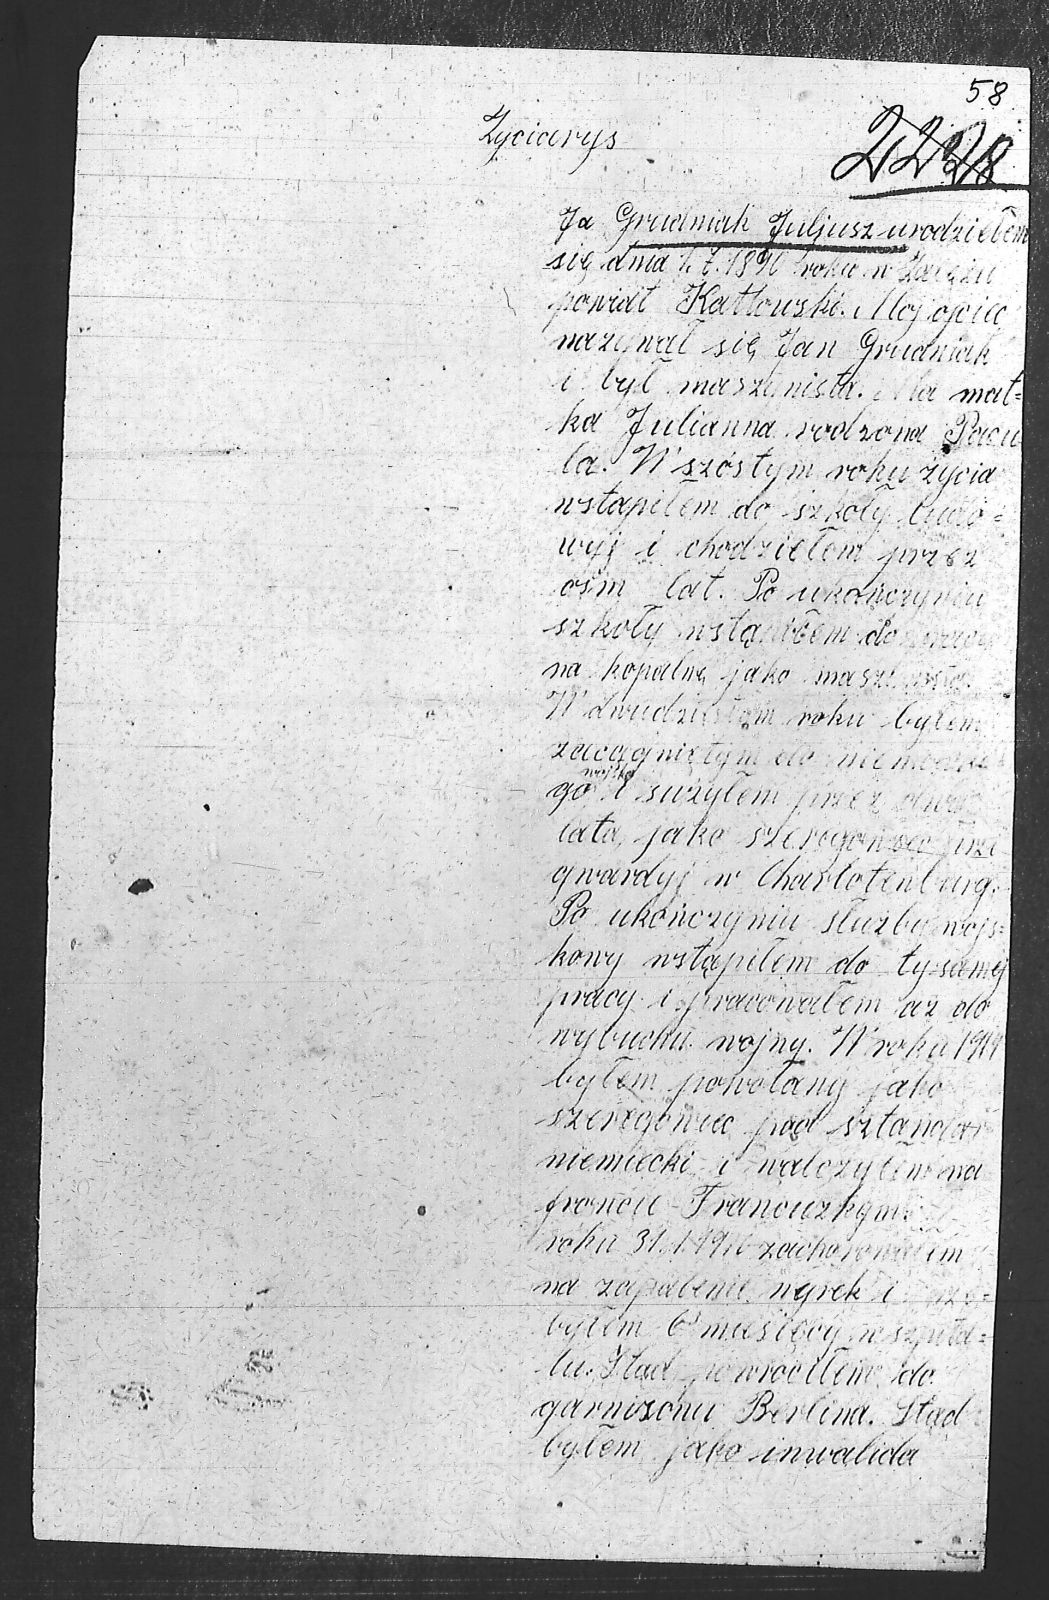 58
Zyciorys
2228
Ja Grudniak Juljusz urodziełem
się dnia 1. 7. 1890 roku w Załężu
powiat Kattowski. Moj ojciec
nazywał się Jan Grudniak
i był maszynista. Ma mat=
ka Julianna rodzona Pacu
la. W szóstym roku życia
wstąpiłem do szkoły ludo=
wyj i chodziełem przez
ośm lat. Po ukończyniu
szkoły wstąpiłem do
na kopalnę jako
W dwudziestym roku byłem
zacągniętym do niemieckie
go wojska i służyłem przez dwa
lata, jako szeregowiec przi
gwardyj w Charlotenburg.
Po ukończyniu służby wojs=
kowy wstąpiłem do tysamej
pracy i pracowałem aż do
wybuchu wojny. W roku 1914
byłem powołany jako
szeregowiec pod sztandar
niemiecki i walczyłem na
froncie Francuzkym
roku 31.1.1916 zachorowałem
na zapalenie nyrek i
byłem 6 miesięcy w szpita=
lu. Stąd powrociłem do
garnizonu Berlina. Stąd
byłem jako inwalida